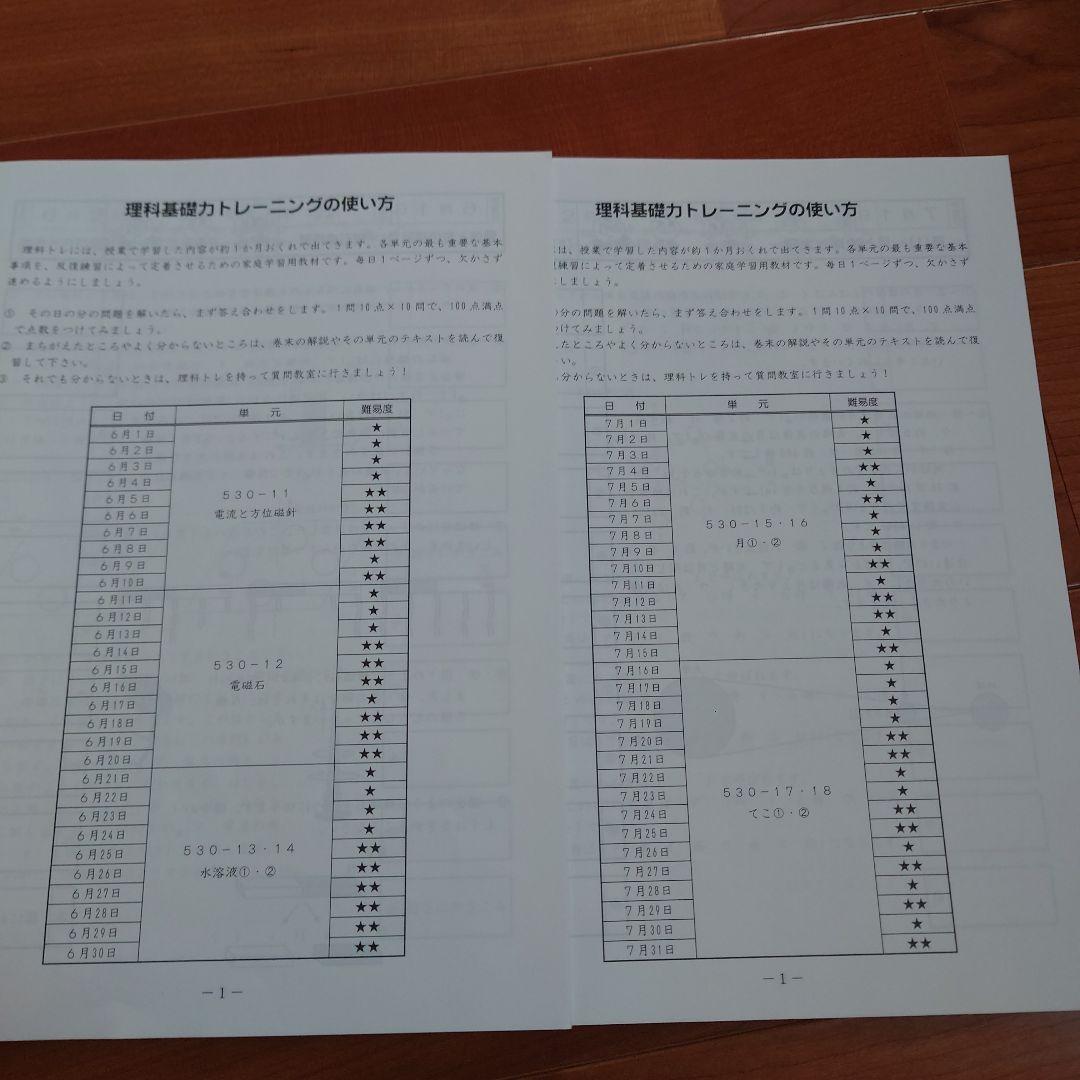 理科基礎力トレーニングの使い方
理科トレには、授業で学習した内容が約1か月おくれて出てきます。各単元の最も重要な基本
事項を、反復練習によって定着させるための家庭学習用教材です。毎日1ページずつ、欠かさず
進めるようにしましょう。
① その日の分の問題を解いたら、まず答え合わせをします。1問10点×10問で、100点満点
で点数をつけてみましょう。
② まちがえたところやよく分からないところは、巻末の解説やその単元のテキストを読んで復
習して下さい。
③ それでも分からないときは、理科トレを持って質問教室に行きましょう！
日 付 単 元 難易度
6月1日 ★
6月2日 ★
6月3日 ★
6月4日 ★
6月5日 530-11 ★★
6月6日 電流と方位磁針 ★★
6月7日 ★★
6月8日 ★★
6月9日 ★
6月10日 ★★
6月11日 ★
6月12日 ★
6月13日 ★
6月14日 ★★
6月15日 530-12 ★★
6月16日 電磁石 ★★
6月17日 ★
6月18日 ★★
6月19日 ★★
6月20日 ★★
6月21日 ★
6月22日 ★
6月23日 ★
6月24日 ★
6月25日 530-13・14 ★★
6月26日 水溶液①・② ★★
6月27日 ★★
6月28日 ★★
6月29日 ★★
6月30日 ★★
－1－
理科基礎力トレーニングの使い方
は、授業で学習した内容が約1か月おくれて出てきます。各単元の最も重要な基本
練習によって定着させるための家庭学習用教材です。毎日1ページずつ、欠かさず
しましょう。
の分の問題を解いたら、まず答え合わせをします。1問10点×10問で、100点満点
つけてみましょう。
たところやよく分からないところは、巻末の解説やその単元のテキストを読んで復
い。
分からないときは、理科トレを持って質問教室に行きましょう！
日 付 単 元 難易度
7月1日 ★
7月2日 ★
7月3日 ★
7月4日 ★★
7月5日 ★
7月6日 ★★
7月7日 530-15・16 ★
7月8日 月①・② ★
7月9日 ★
7月10日 ★★
7月11日 ★
7月12日 ★★
7月13日 ★★
7月14日 ★
7月15日 ★★
7月16日 ★
7月17日 ★
7月18日 ★
7月19日 ★
7月20日 ★★
7月21日 ★★
7月22日 ★
7月23日 530-17・18 ★
7月24日 てこ①・② ★★
7月25日 ★★
7月26日 ★
7月27日 ★★
7月28日 ★
7月29日 ★★
7月30日 ★
7月31日 ★★
－1－